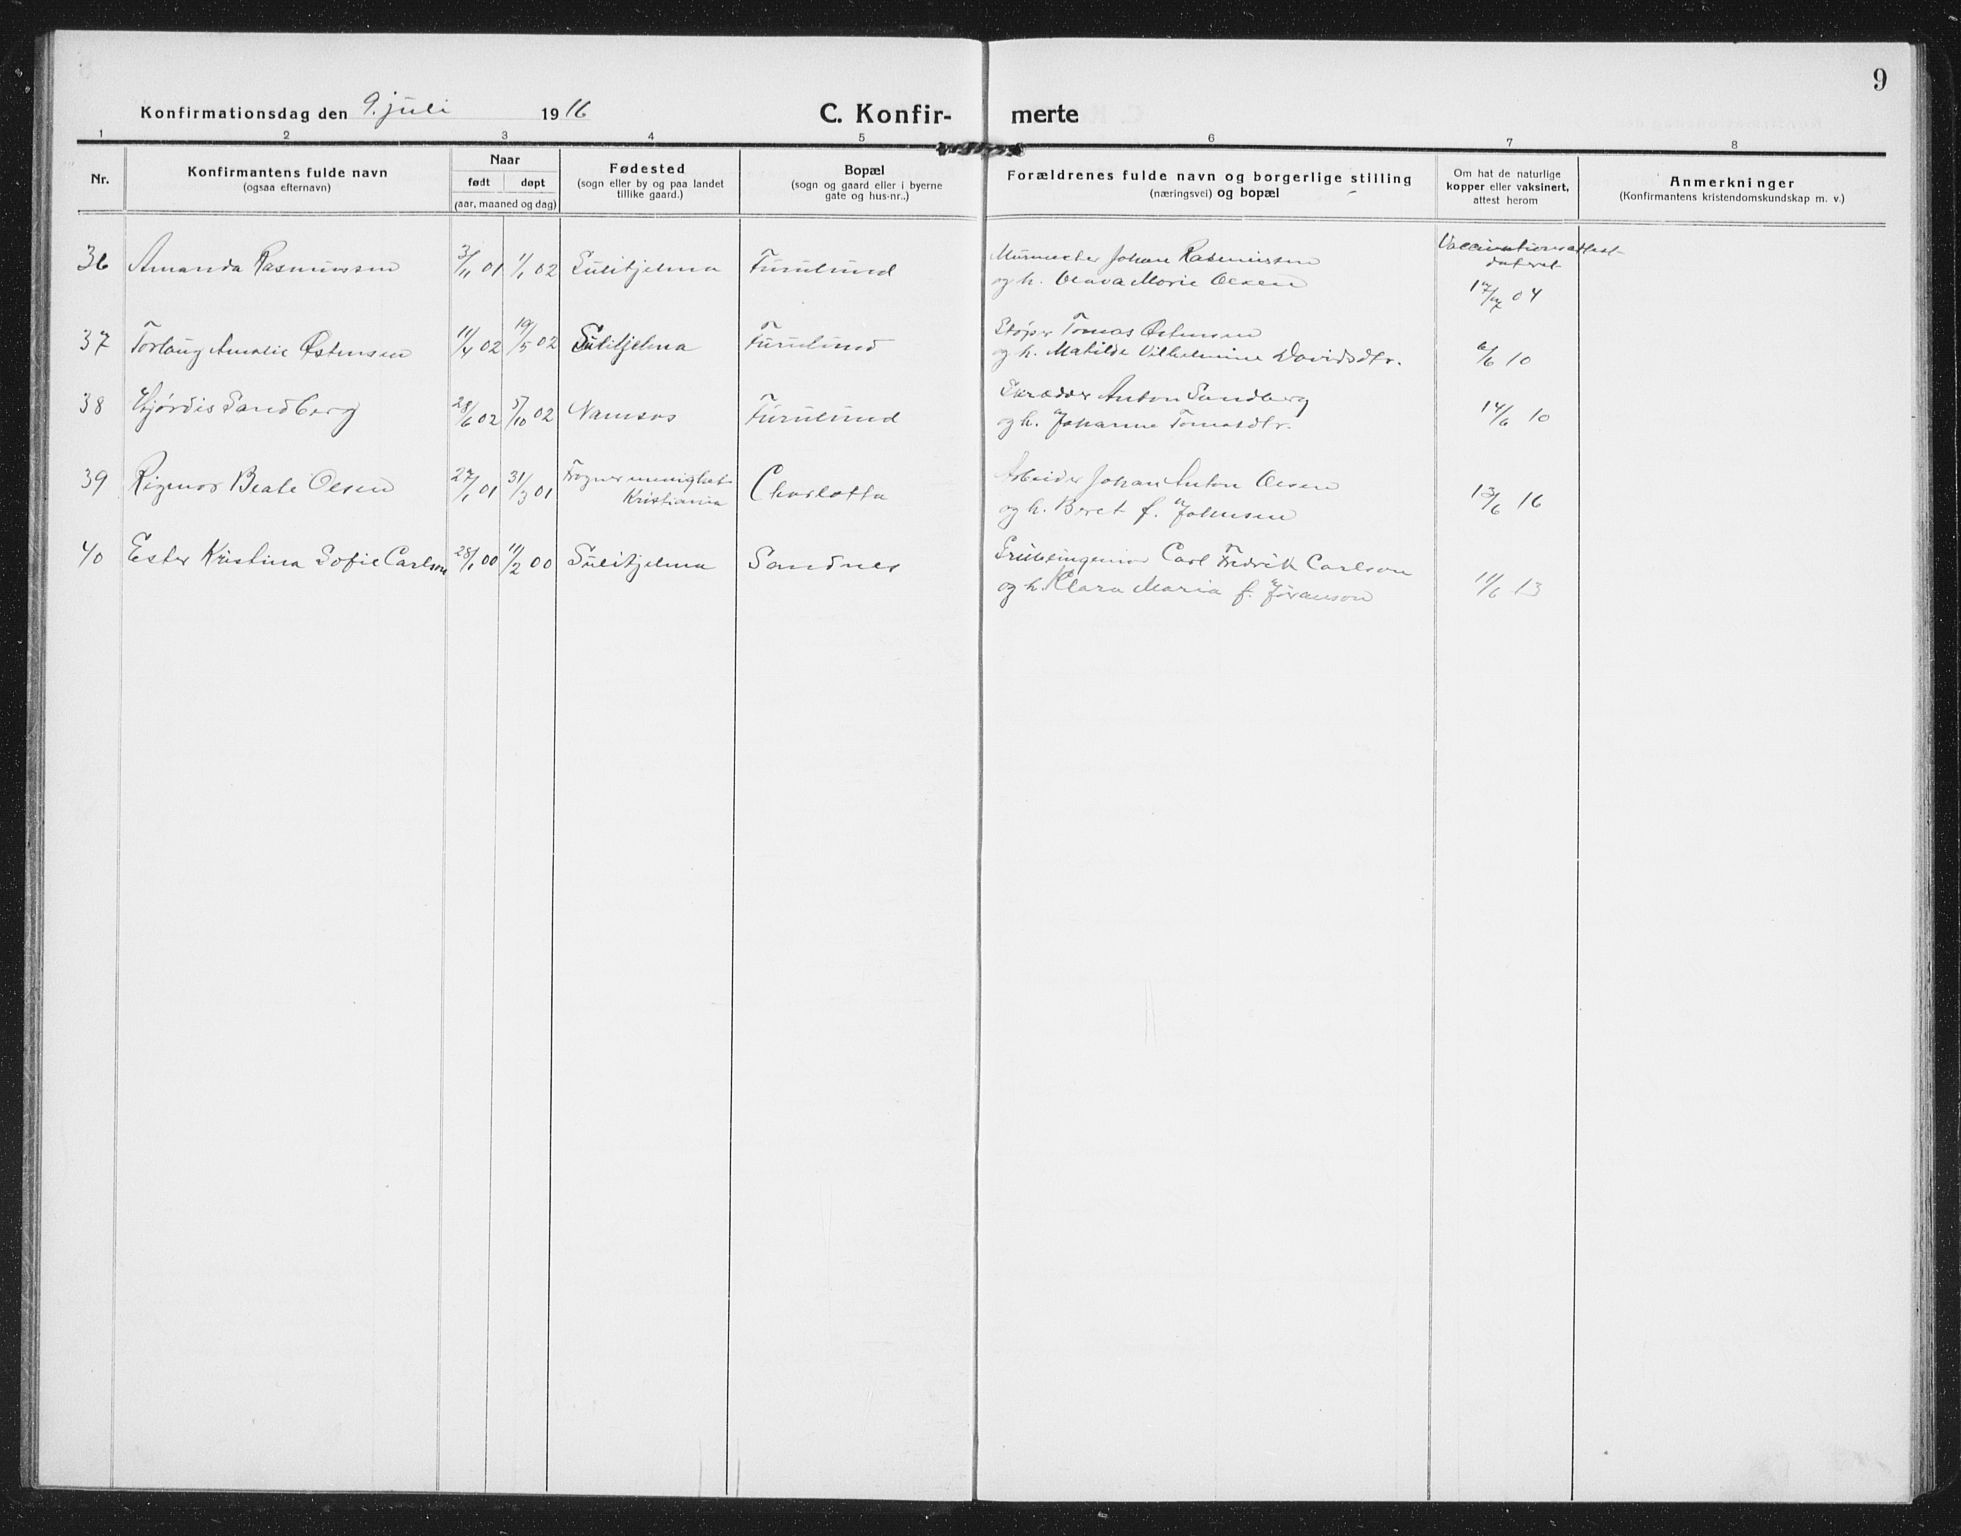 9
Konfirmationsdag den 9. juli 1916 C. Konfir- merte
1 2 3 4 5 6 7 8
Nr. Konfirmantens fulde navn (ogsaa efternavn) Naar født døpt (aar, maaned og dag) Fødested (sogn eller by og paa landet tillike gaard.) Bopæl (sogn og gaard eller i byerne gate og hus-nr..) Forældrenes fulde navn og borgerlige stilling (næringsvei) og bopæl Om hat de naturlige kopper eller vaksinert, attest herom Anmerkninger (Konfirmantens kristendomskundskap m. v.)
36 Amanda Rasmussen 3/11 01 1/1 02 Sulitjelma Furulund Murmester Johan Rasmussen Vaccinationsattest
og h. Olava Marie Olsen dateret 04
37 Torlaug Amalie Østensen 11/4 02 19/5 02 Sulitjelma Furulund Støper Tomas Østensen
og h. Matilde Vilhelmine Davidsdtr. 6/6 10
38 Hjørdis Sandberg 28/6 02 5/10 02 Namsos Furulund Skrædder Anton Sandberg
og h. Johanne Tomasdtr. 14/6 10
39 Rigmor Beate Olsen 27/1 01 31/3 01 Frogner menighet Kristiania Charlotta Arbeider Johan Anton Olsen
og h. Beret f. Johnsen 13/6 16
40 Ester Kristina Sofie Carlson 28/1 00 11/2 00 Sulitjelma Sandnes Grubeingeniør Carl Fredrik Carlson
og h. Klara Maria f. Jøranson 11/6 13